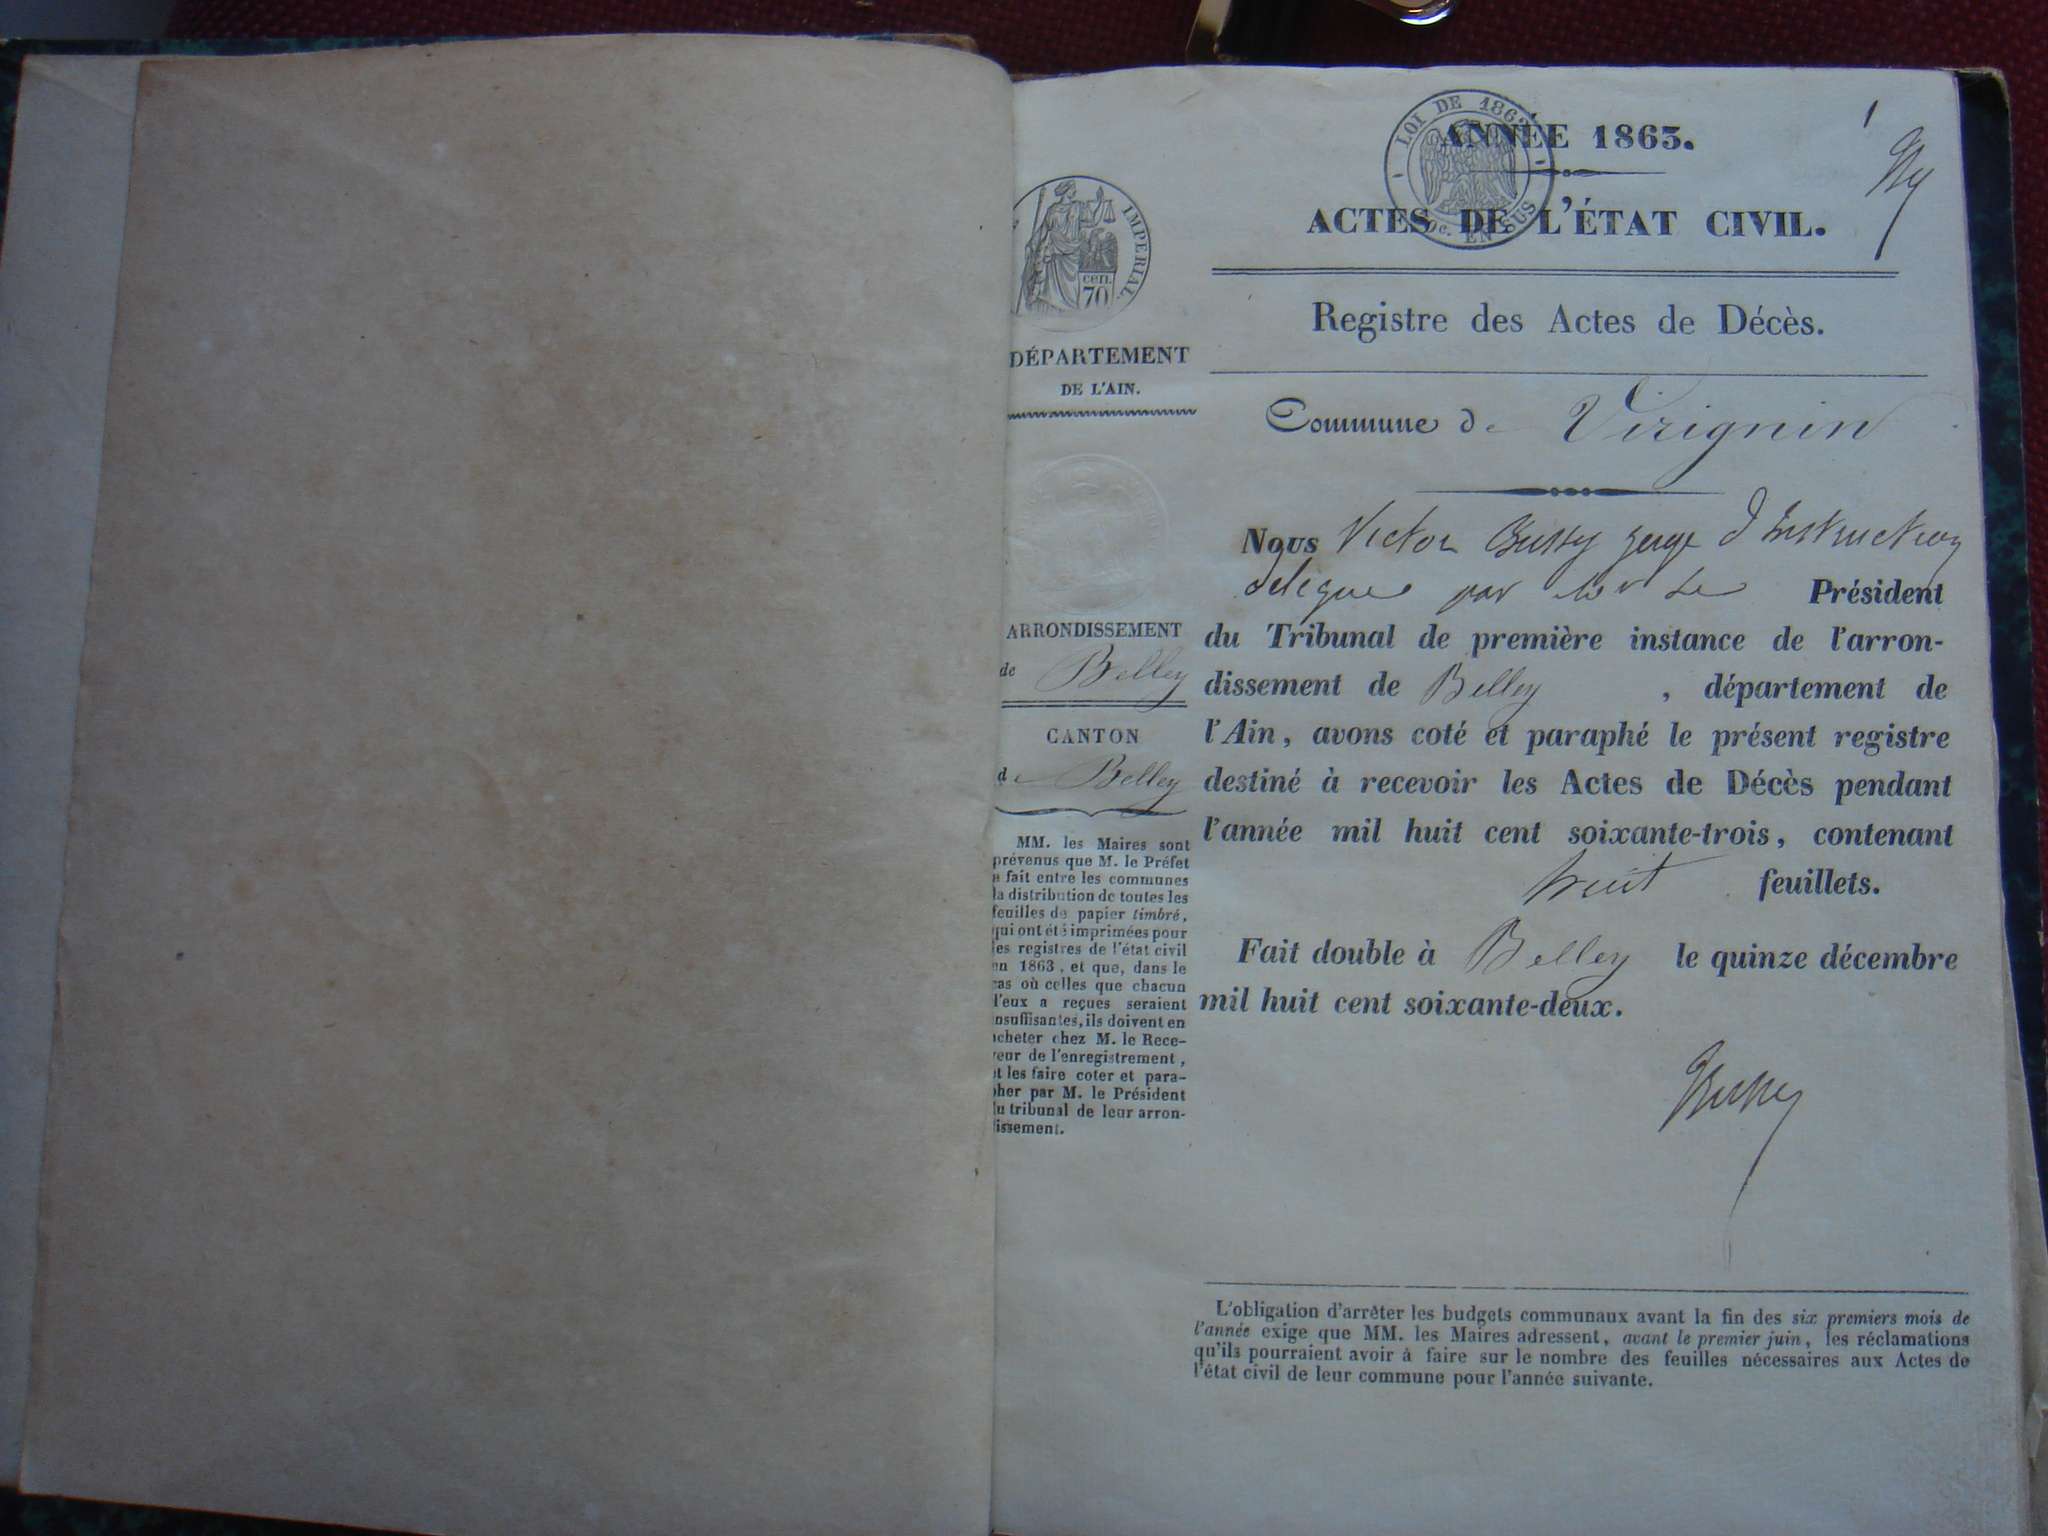 LOI DE 1862
ANNÉE 1863.
1
ACTES DE L'ÉTAT CIVIL.
EN SUS
IMPERIAL
cen.
70
Registre des Actes de Décès.
DÉPARTEMENT
DE L'AIN.
Commune de Virignin
Nous Victor Bussy Juge d'Instruction
délégué par Mr Le Président
du Tribunal de première instance de l'arron-
dissement de Belley, département de
l'Ain, avons coté et paraphé le présent registre
destiné à recevoir les Actes de Décès pendant
l'année mil huit cent soixante-trois, contenant
huit feuillets.
Fait double à Belley le quinze décembre
mil huit cent soixante-deux.
Bussy
ARRONDISSEMENT
de Belley
CANTON
de Belley
MM. les Maires sont
prévenus que M. le Préfet
a fait entre les communes
la distribution de toutes les
feuilles de papier timbré,
qui ont été imprimées pour
les registres de l'état civil
en 1863, et que, dans le
cas où celles que chacun
d'eux a reçues seraient
insuffisantes, ils doivent en
acheter chez M. le Rece-
veur de l'enregistrement,
et les faire coter et para-
pher par M. le Président
du tribunal de leur arron-
dissement.
L'obligation d'arrêter les budgets communaux avant la fin des six premiers mois de
l'année exige que MM. les Maires adressent, avant le premier juin, les réclamations
qu'ils pourraient avoir à faire sur le nombre des feuilles nécessaires aux Actes de
l'état civil de leur commune pour l'année suivante.